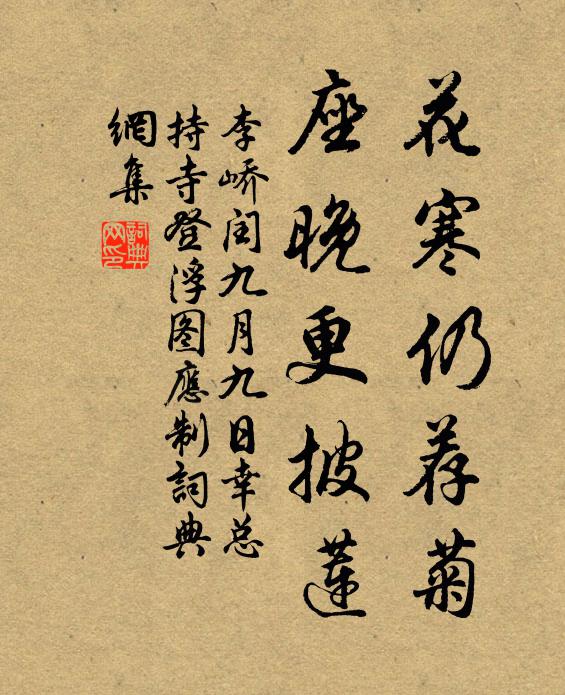 花寒仍荐菊
座晚更披莲
李峤闰九月九日幸总
持寺登浮图應制詞典
網集
詞典
网印